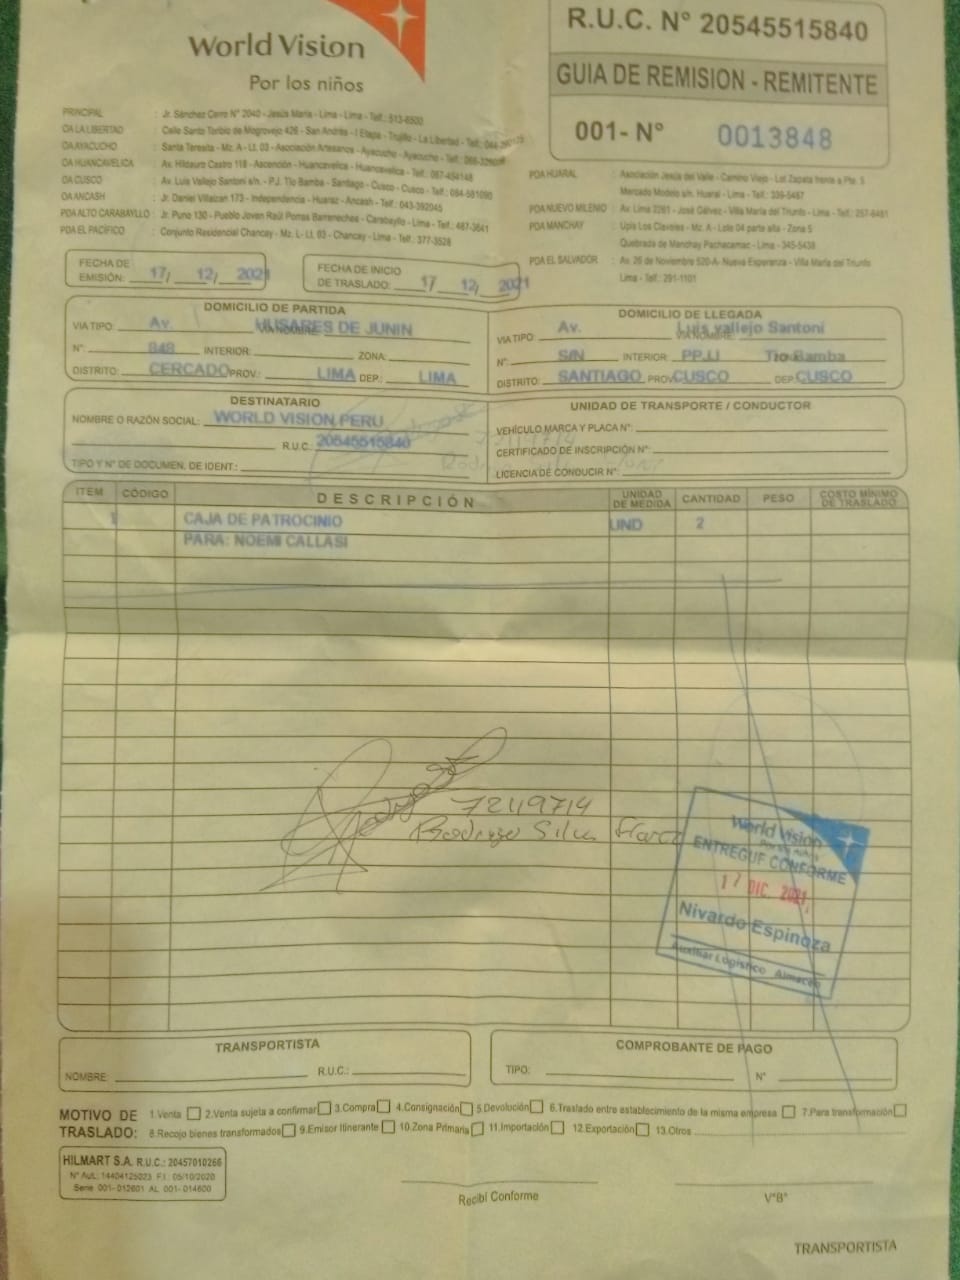 World Vision
Por los niños
R.U.C. N° 20545515840
GUIA DE REMISION - REMITENTE
001- N° 0013848
PRINCIPAL : Jr. Sánchez Cerro N° 2040 - Jesús María - Lima - Lima - Telf.: 513-6500
OA LA LIBERTAD : Calle Santo Toribio de Mogrovejo 426 - San Andrés - I Etapa - Trujillo - La Libertad - Telf.:
OA AYACUCHO : Santa Teresita - Mz. A - Lt. 03 - Asociación Artesanos - Ayacucho - Ayacucho - Telf.:
OA HUANCAVELICA : Av. Hildauro Castro 118 - Ascención - Huancavelica - Huancavelica - Telf.: 067-454148
OA CUSCO : Av. Luis Vallejo Santoni s/n. - P.J. Tío Bamba - Santiago - Cusco - Cusco - Telf.: 084-581090
OA ANCASH : Jr. Daniel Villaizan 173 - Independencia - Huaraz - Ancash - Telf.: 043-392045
PDA ALTO CARABAYLLO : Jr. Puno 130 - Pueblo Joven Raúl Porras Barrenechea - Carabayllo - Lima - Telf.: 487-3641
PDA EL PACÍFICO : Conjunto Residencial Chancay - Mz. L - Lt. 03 - Chancay - Lima - Telf. 377-3528
PDA HUARAL : Asociación Jesús del Valle - Camino Viejo - Lot Zapata frente a Pte. 5
Mercado Modelo s/n. Huaral - Lima - Telf.: 339-5467
PDA NUEVO MILENIO : Av. Lima 2261 - José Gálvez - Villa María del Triunfo - Lima - Telf.: 257-6481
PDA MANCHAY : Upis Los Claveles - Mz. A - Lote 04 parte alta - Zona 5
Quebrada de Manchay Pachacamac - Lima - 345-5438
PDA EL SALVADOR : Av. 26 de Noviembre 520-A- Nueva Esperanza - Villa María del Triunfo
Lima - Telf.: 291-1101
FECHA DE EMISIÓN: 17/ 12/ 2021
FECHA DE INICIO DE TRASLADO: 17/ 12/ 2021
DOMICILIO DE PARTIDA
VIA TIPO: Av. VIA NOMBRE: HUSARES DE JUNIN
N°: 848 INTERIOR: ZONA:
DISTRITO: CERCADO PROV.: LIMA DEP.: LIMA
DOMICILIO DE LLEGADA
VIA TIPO: Av. VIA NOMBRE: Luis vallejo Santoni
N°: S/N INTERIOR: PP.JJ Tio Bamba
DISTRITO: SANTIAGO PROV: CUSCO DEP: CUSCO
DESTINATARIO
NOMBRE O RAZÓN SOCIAL: WORLD VISION PERU
R.U.C. 20545515840
TIPO Y N° DE DOCUMEN. DE IDENT.:
UNIDAD DE TRANSPORTE / CONDUCTOR
VEHÍCULO MARCA Y PLACA N°:
CERTIFICADO DE INSCRIPCIÓN N°:
LICENCIA DE CONDUCIR N°:
ITEM CÓDIGO DESCRIPCIÓN UNIDAD DE MEDIDA CANTIDAD PESO COSTO MÍNIMO DE TRASLADO
1 CAJA DE PATROCINIO UND 2
PARA: NOEMI CALLASI
72119714
Rodrigo Silva
World Vision
Por los niños
ENTREGUE CONFORME
17 DIC. 2021
Nivardo Espinoza
Auxiliar Logístico Almacén
TRANSPORTISTA
NOMBRE: R.U.C.:
COMPROBANTE DE PAGO
TIPO: N°
MOTIVO DE TRASLADO: 1.Venta 2.Venta sujeta a confirmar 3.Compra 4.Consignación 5.Devolución 6.Traslado entre establecimiento de la misma empresa 7.Para transformación
8.Recojo bienes transformados 9.Emisor Itinerante 10.Zona Primaria 11.Importación 12.Exportación 13.Otros
HILMART S.A. R.U.C.: 20457010266
N° Aut.: 14404125023 F.I. 05/10/2020
Serie 001-012601 AL 001-014600
Recibí Conforme
V°B°
TRANSPORTISTA